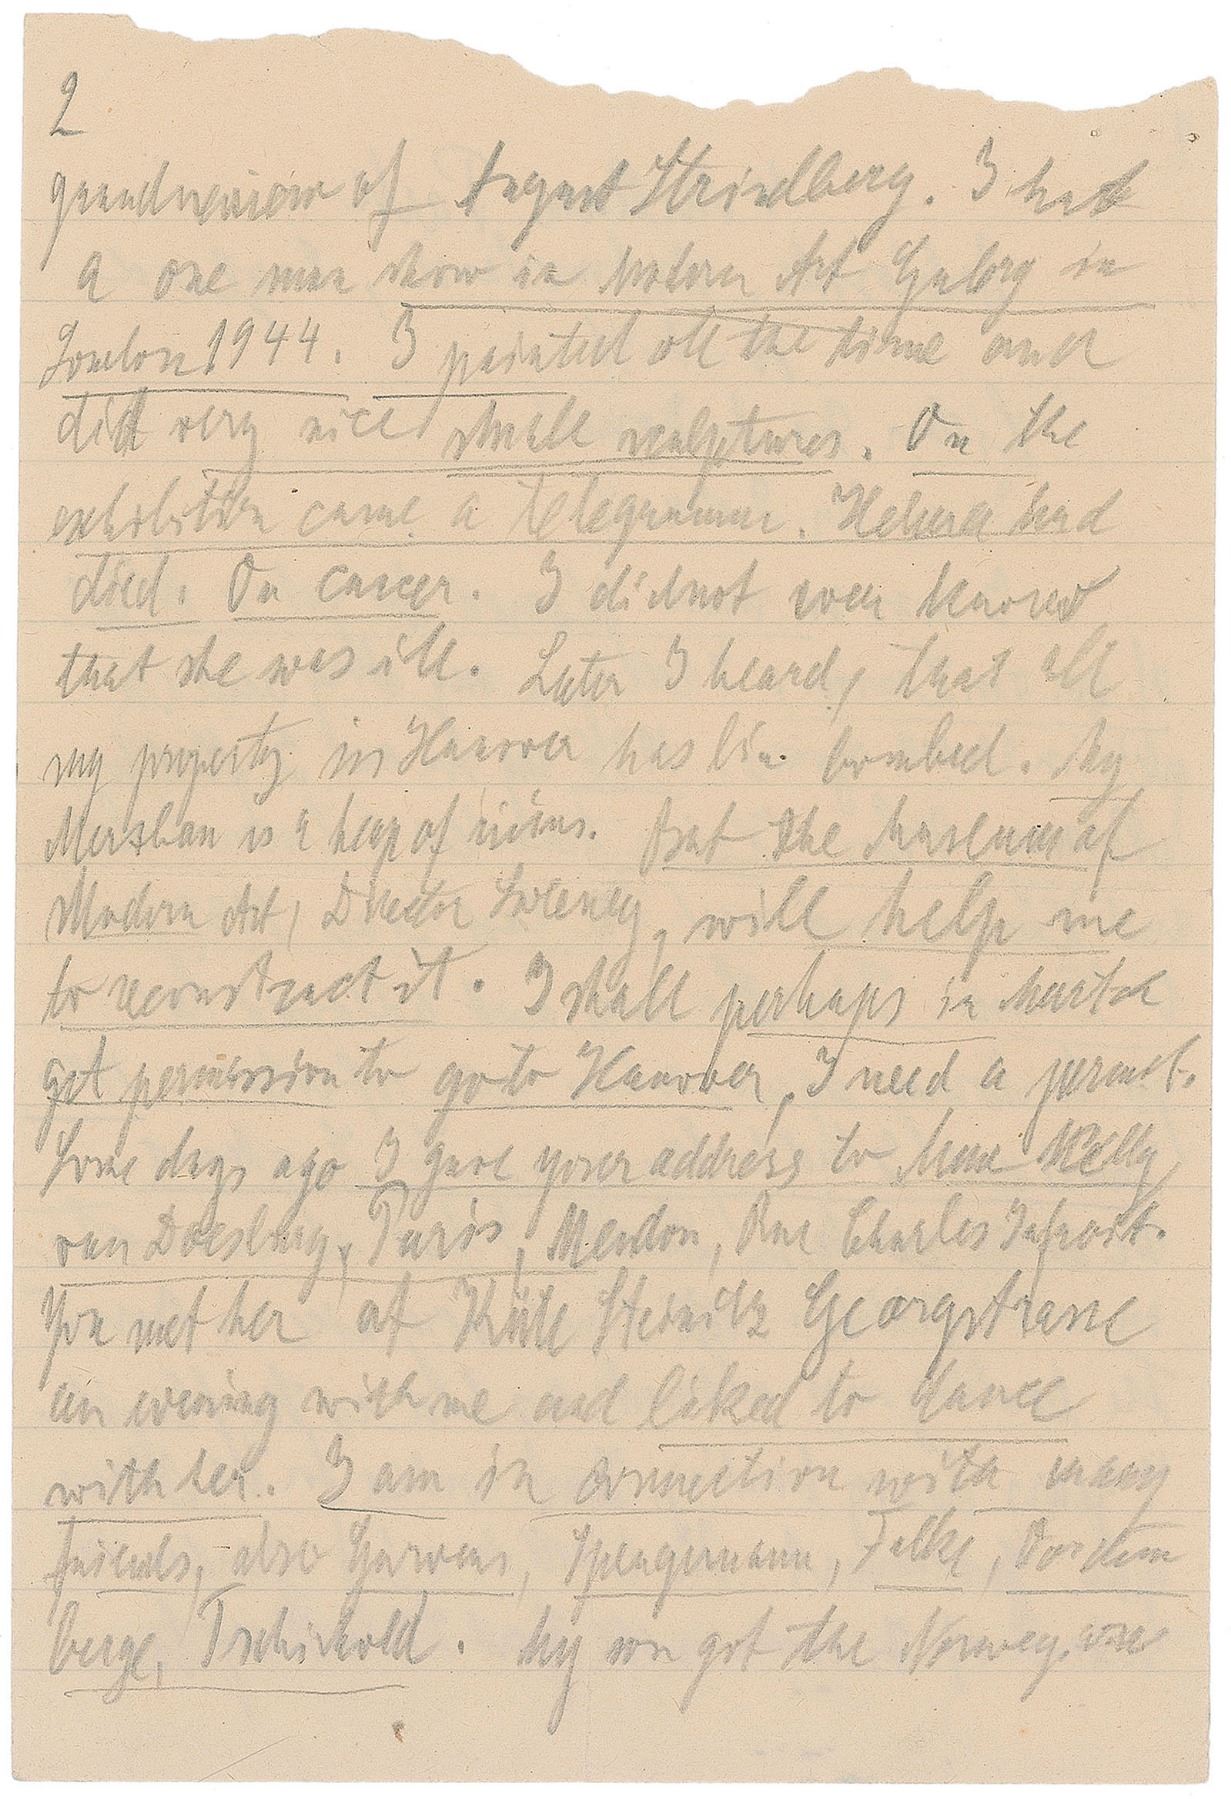 2
of August Strindberg. I had
a one man show in Modern Art Galery in
London 1944. I painted all the time and
did very nice small sculptures. On the
exhibition came a telegramm. Helma had
died. On cancer. I did not even know
that she was ill. Later I heard, that all
my property in Hanover has bin bombed. My
Merzbau is a heap of ruins. But the Museum of
Modern Art, Director Sweeney, will help me
to reconstruct it. I shall perhaps in March
get permission to go to Hanover, I need a permit.
Some days ago I gave your address to Mme Nelly
van Doesburg, Paris, Meudon, Rue Charles Infroit.
You met her at Käte Steinitz Georgstrasse
an evening with me and liked to dance
with her. I am in connection with many
friends, also Garvens, Spengemann, Falke, Vordem
berge, Tschichold. My son got the